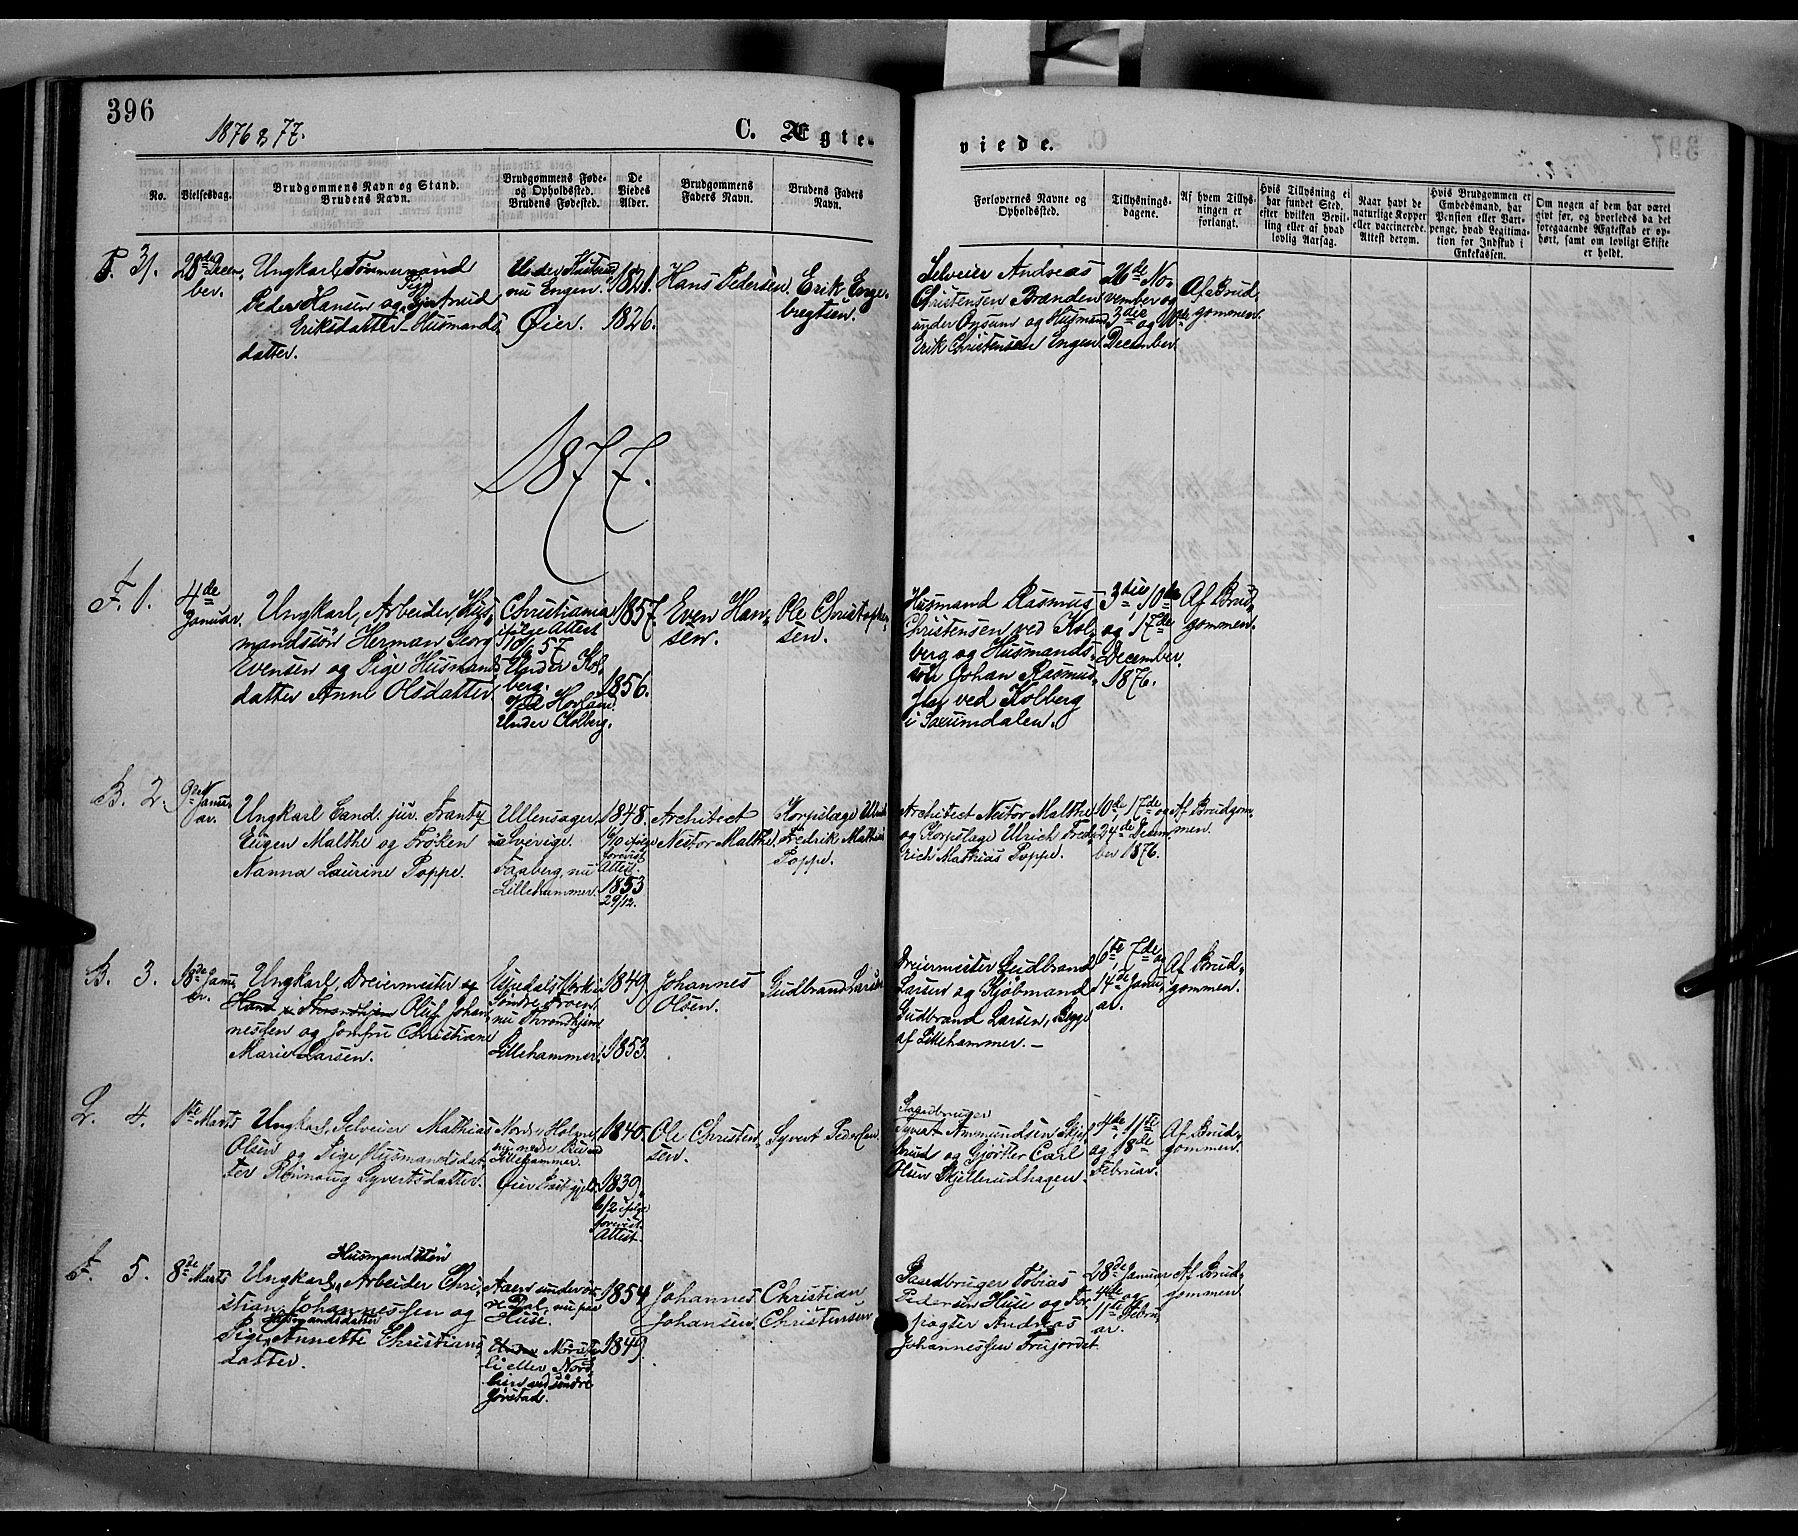 396
1876 & 77.
C. Ægte-
viede.
No.
Vielsesdag.
Brudgommens Navn og Stand.
Brudens Navn.
Brudgommens Føde-
og Opholdssted.
Brudens Fødested.
De
Viedes
Alder.
Brudgommens
Faders Navn.
Brudens Faders
Navn.
Forlovernes Navne og
Opholdssted.
Tillysnings-
dagene.
Af hvem Tillys-
ningen er
forlangt.
Hvis Tillysning ei
har fundet Sted,
efter hvilken Bevil-
ling eller af hvad
lovlig Aarsag.
Naar havt de
naturlige Kopper
eller vaccinerede.
Attest derom.
Hvis Brudgommen er
Embedsmand, har
Pension eller Vart-
penge, hvad Legitima-
tion for Indskud i
Enkekassen.
Om nogen af dem har været
gift før, og hvorledes da det
foregaaende Ægteskab er op-
hørt, samt om lovligt Skifte
er holdt.
F. 31.
28de Decem-
ber.
Ungkarl Tømmermand
Peder Hansen og Pige Gjertrud
Eriksdatter Husmands
datter.
nu Engen.
Øier.
1821.
1826.
Hans Pedersen.
Erik Enge-
bregtsen.
Selveier Andreas
Christensen Brænden
under Øysum og Husmand
Erik Christensen Engen
26de No-
vember og
3die og 10de
December.
Af Brud-
gommen.
1877.
F. 1.
4de
Januar.
Ungkarl, Arbeider, Hus-
mandssøn Herman Georg
Evensen og Pige Husmands
datter Anne Olsdatter.
Christiania
ifølge Attest
Under Kol-
berg.
Under Kolberg.
1857.
1856.
Even Han-
sen.
Ole Christophers-
sen.
Husmand Rasmus
Christensen ved Kol-
berg og Husmands-
søn Johan Rasmus-
sen ved Kolberg
i Saxumdalen.
3die, 10de
og 17de
December.
1876.
Af Brud-
gommen.
B. 2.
9de Janu-
ar.
Ungkarl Cand. jur. Frantz
Eugen Malthe og Frøken
Nanna Laurine Poppe.
Ullensager,
Faaberg, nu
Lillehammer.
1848.
6/10 ifølge
forevist
Attest.
1853
29/12.
Architect
Nestor Malthe.
Korpslæge Ulrich
Fredrik Mathias
Poppe.
Architect Nestor Malthe
og Korpslæge Ulrich Fred-
rich Mathias Poppe.
10de, 17de og
24de Decem-
ber 1876.
Af Brudgom-
men.
B. 3.
18de Janu-
ar.
Ungkarl, Dreiermester og
Oluf Johan-
nessen og Jomfru Christiane
Marie Larsen.
nu Throndhjem
Lillehammer.
1849
1853.
Johannes
Olsen.
Gudbrand Larsen
Dreiermester Gudbrand
Larsen og Kjøbmand
Gudbrand Larsen, Begge
af Lillehammer. —
6te, 7de og
14de Janu-
ar.
Af Brud-
gommen.
L. 4.
1ste Marts
Ungkarl, Selveier Mathias
Olsen og Pige Husmandsdat-
ter Rønnaug Syvertsdatter.
Lillehammer.
1840.
1839.
6/2 ifølge
forevist
Attest.
Ole Christen-
sen.
Syvert Pedersen.
Gaardbruger
Syvert Ammundsen Skjel-
lerud og Gjørtler Carl
Olsen Skjellerudhagen.
4de, 11te
og 18de
Februar.
Af Brud-
gommen.
F. 5.
8de Marts
Husmandssøn
Ungkarl, Arbeider Chri-
stian Johannessen og
Husmandsdatter
Pige Annette Christians-
datter.
Huse.
Jørstad.
1854
1849.
Johannes
Johansen.
Christian
Christensen
Gaardbruger Tobias
Pedersen Huse og For-
pagter Andreas
Johannessen Trujordet.
28de Januar
4de og
11te Febru-
ar.
Af Brud-
gommen.